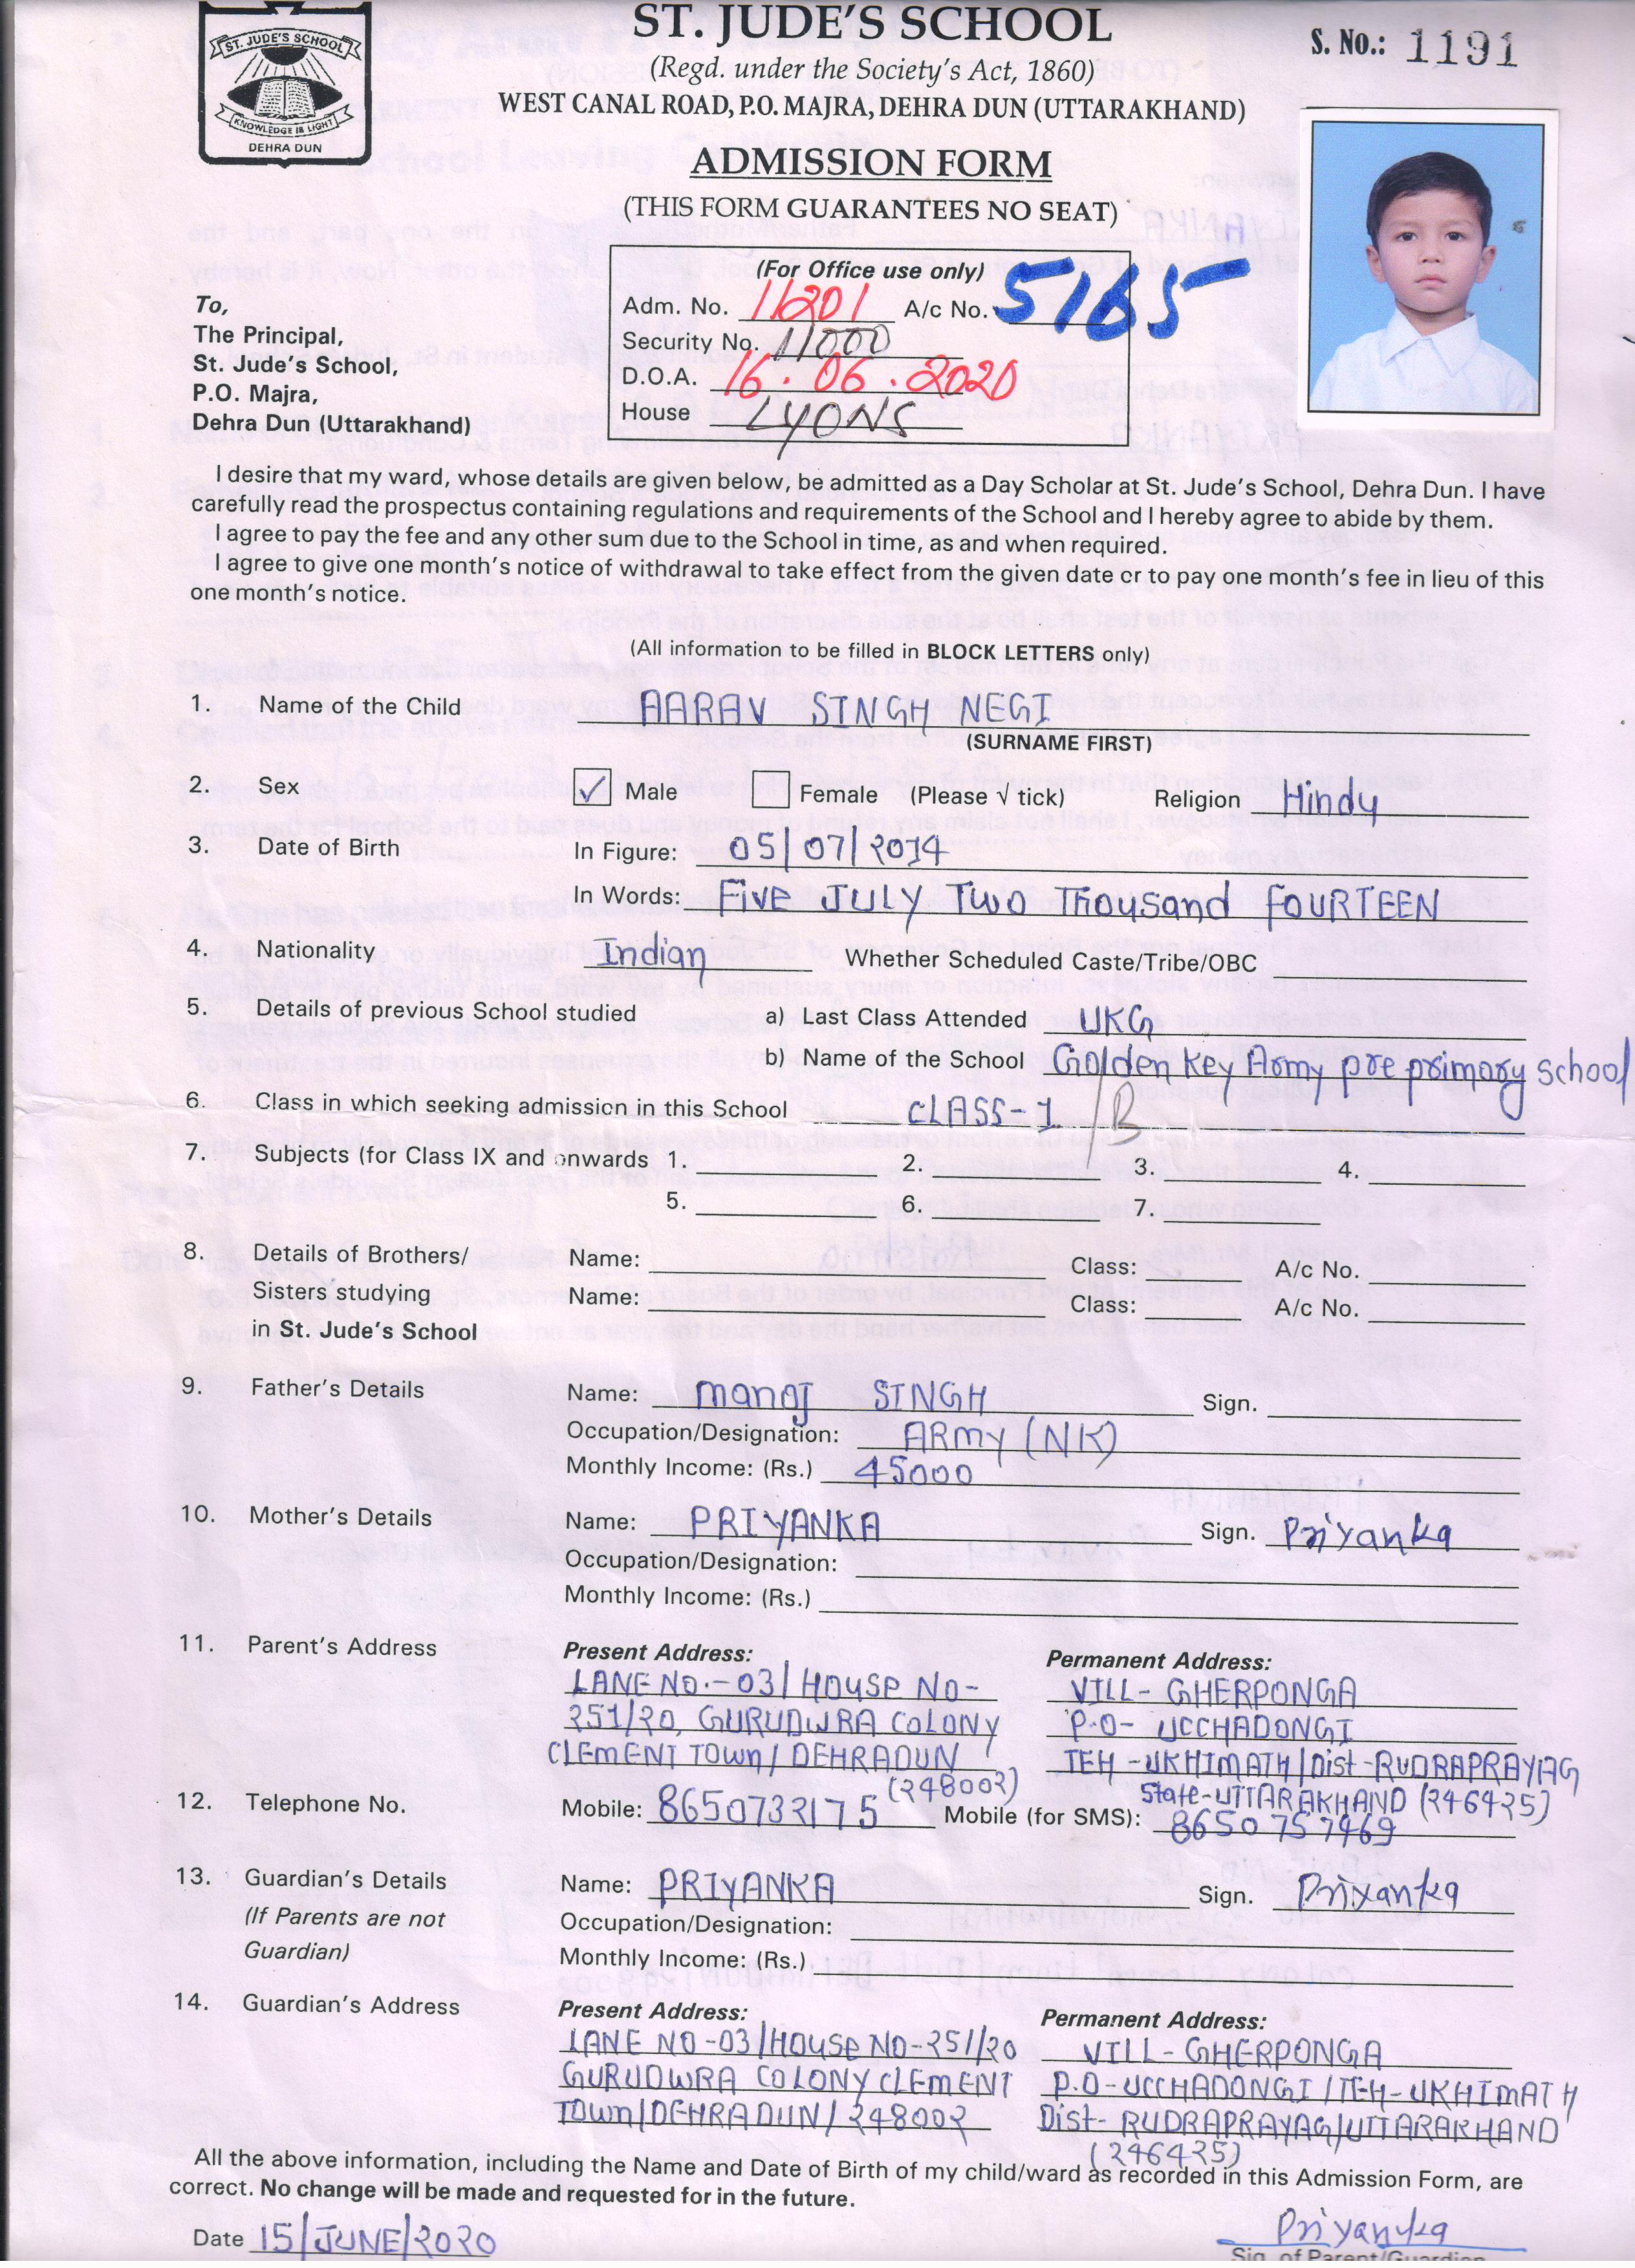 ST. JUDE'S SCHOOL
KNOWLEDGE IS LIGHT
DEHRA DUN
ST. JUDE'S SCHOOL
(Regd. under the Society's Act, 1860)
WEST CANAL ROAD, P.O. MAJRA, DEHRA DUN (UTTARAKHAND)
S. No.: 1191
ADMISSION FORM
(THIS FORM GUARANTEES NO SEAT)
(For Office use only)
Adm. No. 11201 A/c No. 5165
Security No. 11000
D.O.A. 16.06.2020
House LYONS
To,
The Principal,
St. Jude's School,
P.O. Majra,
Dehra Dun (Uttarakhand)
I desire that my ward, whose details are given below, be admitted as a Day Scholar at St. Jude's School, Dehra Dun. I have
carefully read the prospectus containing regulations and requirements of the School and I hereby agree to abide by them.
I agree to pay the fee and any other sum due to the School in time, as and when required.
I agree to give one month's notice of withdrawal to take effect from the given date or to pay one month's fee in lieu of this
one month's notice.
(All information to be filled in BLOCK LETTERS only)
1. Name of the Child AARAV SINGH NEGI
(SURNAME FIRST)
2. Sex ✓ Male Female (Please √ tick) Religion Hindu
3. Date of Birth In Figure: 05/07/2014
In Words: FIVE JULY TWO THousand FOURTEEN
4. Nationality Indian Whether Scheduled Caste/Tribe/OBC
5. Details of previous School studied a) Last Class Attended UKG
b) Name of the School Golden Key Army pre primary school
6. Class in which seeking admission in this School CLASS-1 / B
7. Subjects (for Class IX and onwards 1. 2. 3. 4.
5. 6. 7.
8. Details of Brothers/ Name: Class: A/c No.
Sisters studying Name: Class: A/c No.
in St. Jude's School
9. Father's Details Name: manoj SINGH Sign.
Occupation/Designation: ARmy (NK)
Monthly Income: (Rs.) 45000
10. Mother's Details Name: PRIYANKA Sign. Priyanka
Occupation/Designation:
Monthly Income: (Rs.)
11. Parent's Address Present Address: Permanent Address:
LANE NO.-03/ HOUSE NO- VILL- GHERPONGA
251/20, GURUDWRA COLONY P.O- UCCHADONGI
CLEMENT TOWN/ DEHRADUN TEH -UKHIMATH/Dist-RUDRAPRAYAG
(248002) State-UTTARAKHAND (246425)
12. Telephone No. Mobile: 8650732175 Mobile (for SMS): 8650757469
13. Guardian's Details Name: PRIYANKA Sign. Priyanka
(If Parents are not Occupation/Designation:
Guardian) Monthly Income: (Rs.)
14. Guardian's Address Present Address: Permanent Address:
LANE NO-03/HOUSE NO-251/20 VILL- GHERPONGA
GURUDWRA COLONY CLEMENT P.O-UCCHADONGI / TEH-UKHIMATH
TOWN/DEHRADUN/248002 Dist- RUDRAPRAYAG/UTTARAKHAND
(246425)
All the above information, including the Name and Date of Birth of my child/ward as recorded in this Admission Form, are
correct. No change will be made and requested for in the future.
Date 15/JUNE/2020 Priyanka
Sig. of Parent/Guardian